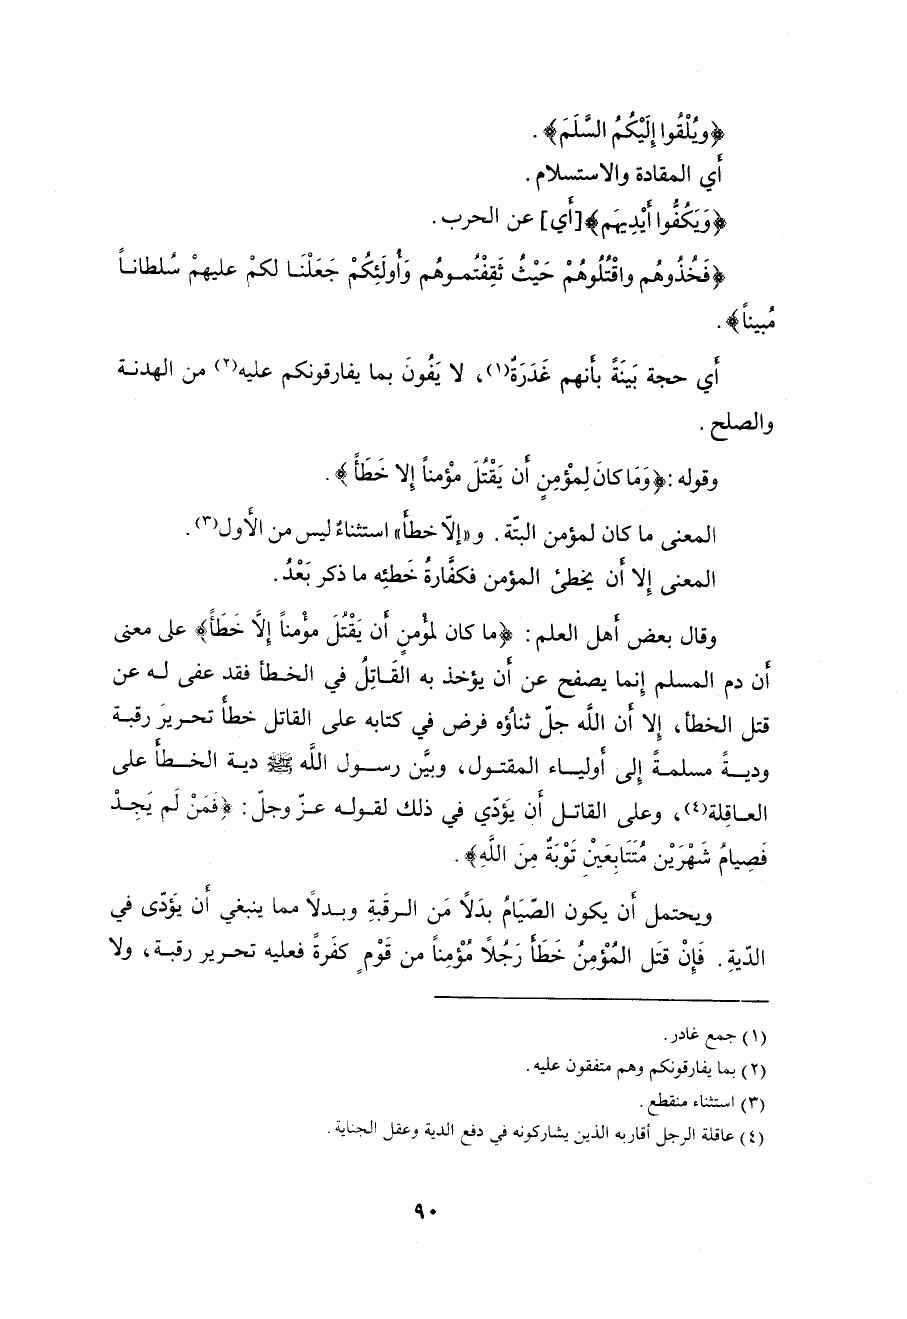 ﴿ويُلْقُوا إِلَيْكُمُ السَّلَمَ﴾ .
أَي المقادة والاستسلام .
﴿وَيَكُفُّوا أَيْدِيهَم﴾[أَي] عن الحرب .
﴿فَخُذُوهُم واقْتُلُوهُمْ حَيْثُ ثَقِفْتُمـوهُم وَأُولَئِكُمْ جَعَلْنَـا لكمْ عليهمْ سُلطانـاً
مُبيناً﴾ .
أَي حجة بَينَةً بأنهم غَدَرَةٌ(١)، لا يَفُونَ بما يفارقونكم عليه(٢) من الهدنـة
والصلح .
وقوله : ﴿وَمَا كانَ لِمؤْمِنٍ أَن يَقْتُلَ مؤْمناً إلا خَطَأً ﴾ .
المعنى ما كان لمؤمن البتّة . و«إلّا خطأً» استثناءٌ ليس من الأَول(٣).
المعنى إلا أَن يخطئ المؤمن فكفَّارةُ خَطئِه ما ذكر بَعْدُ .
وقال بعض أَهل العلم : ﴿ما كان لمؤْمنٍ أَن يَقْتُلَ مؤْمناً إلَّا خَطَأً﴾ على معنى
أَن دم المسلم إنما يصفح عن أَن يؤخذ به القَاتِلُ في الخـطأ فقد عفى لـه عن
قتل الخطأ، إلا أن اللَّه جلّ ثناؤه فرض في كتابه على القاتل خطأً تحريرَ رقبة
وديـةً مسلمةً إلى أَوليـاء المقتـول، وبيَّن رسـول اللَّه ﷺ ديـة الخـطأ على
العـاقِلة(٤)، وعلى القاتـل أَن يَؤدّي في ذلك لقـولـه عـزّ وجلّ : ﴿فَمَنْ لَم يَجِـدْ
فَصِيامُ شَهْرَيْن مُتَتَابِعَيْنِ تَوْبَةً مِنَ اللَّهِ﴾ .
ويحتمل أَن يكون الصِّيَامُ بدَلًا مَن الـرقبةِ وبـدلاً مما ينبغي أَن يَؤدّى في
الدّيةِ . فَإِنْ قتَل المُؤْمِنُ خَطَأً رَجُلًا مُؤْمِناً من قَوْمٍ كفَرةً فعليه تحـرير رقبـة، ولا
(١) جمع غادر .
(٢) بما يفارقونكم وهم متفقون عليه .
(٣) استثناء منقطع .
(٤) عاقلة الرجل أقاربه الذين يشاركونه في دفع الدية وعقل الجناية .
٩٠